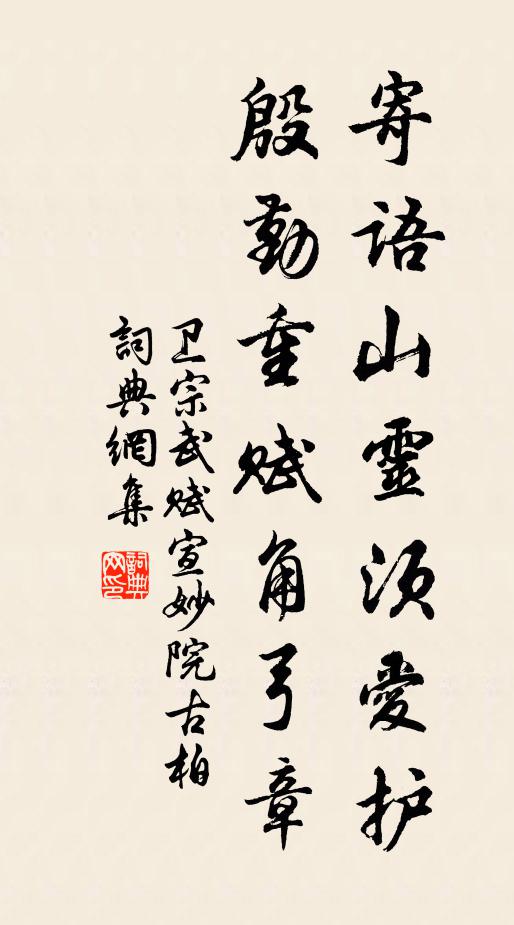 寄语山靈须愛护
殷勤重赋角弓章
卫宗武赋宣妙院古柏
詞典網集
詞典网印